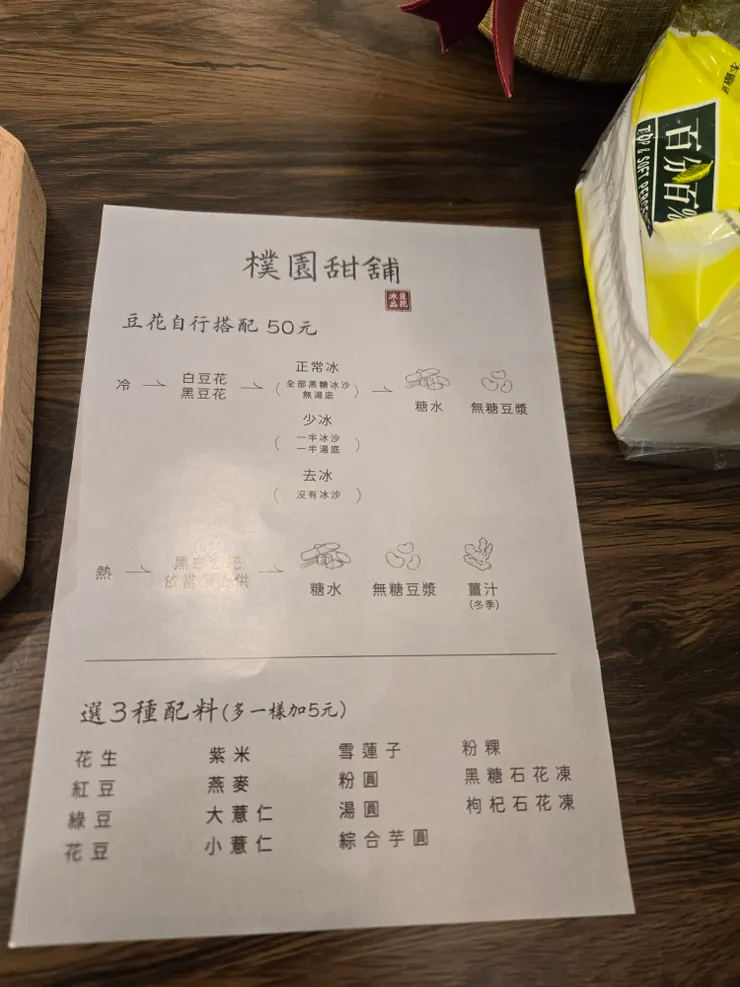 樸園甜舖
豆花
冰品
豆花自行搭配 50元
冷
白豆花
黑豆花
正常冰
(全部黑糖冰沙
無湯底)
糖水
無糖豆漿
少冰
(一半冰沙
一半湯底)
去冰
(沒有冰沙)
熱
糖水
無糖豆漿
薑汁
(冬季)
選3種配料(多一樣加5元)
花生
紫米
雪蓮子
粉粿
紅豆
燕麥
粉圓
黑糖石花凍
綠豆
大薏仁
湯圓
枸杞石花凍
花豆
小薏仁
綜合芋圓
百分百